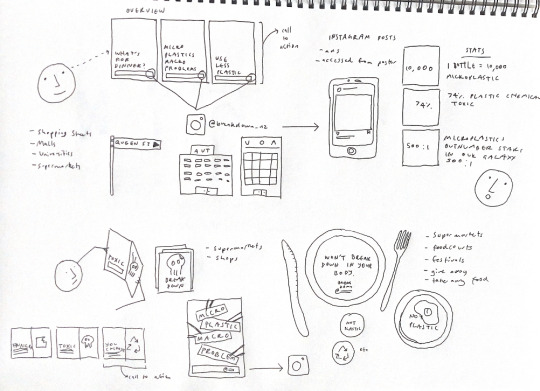 OVERVIEW
WHAT'S
FOR
DINNER?
MICRO
PLASTICS
MACRO
PROBLEMS
USE
LESS
PLASTIC
call
to
action
@breakdown_nz
- Shopping Streets
- Malls
- Universities
- Supermarkets
QUEEN ST
AUT
UOA
INSTAGRAM POSTS
- ads
- accessed from poster
STATS
10,000
1 BOTTLE = 10,000
MICROPLASTIC
74%
74% PLASTIC CHEMICAL
TOXIC
500:1
MICROPLASTICS
OUTNUMBER STARS
IN OUR GALAXY
500:1
TOXIC
BREAK
DOWN
- Supermarkets
- Shops
TOXIC
YOU
call to action
MICRO
PLASTIC
MACRO
PROBLEM
WON'T BREAK
DOWN IN YOUR
BODY.
- Supermarkets
- foodcourts
- festivals
- give away
- take away food
NOT
PLASTIC
etc
NO
PLASTIC